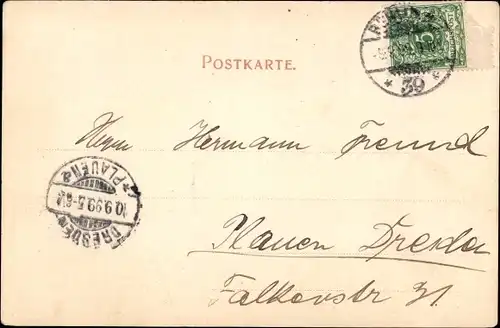 POSTKARTE.
5
39
Herrn Hermann Freund
PLAUEN
10.9.99.5-6N.
DRESDEN
Plauen Dresden
Falkenstr 31.